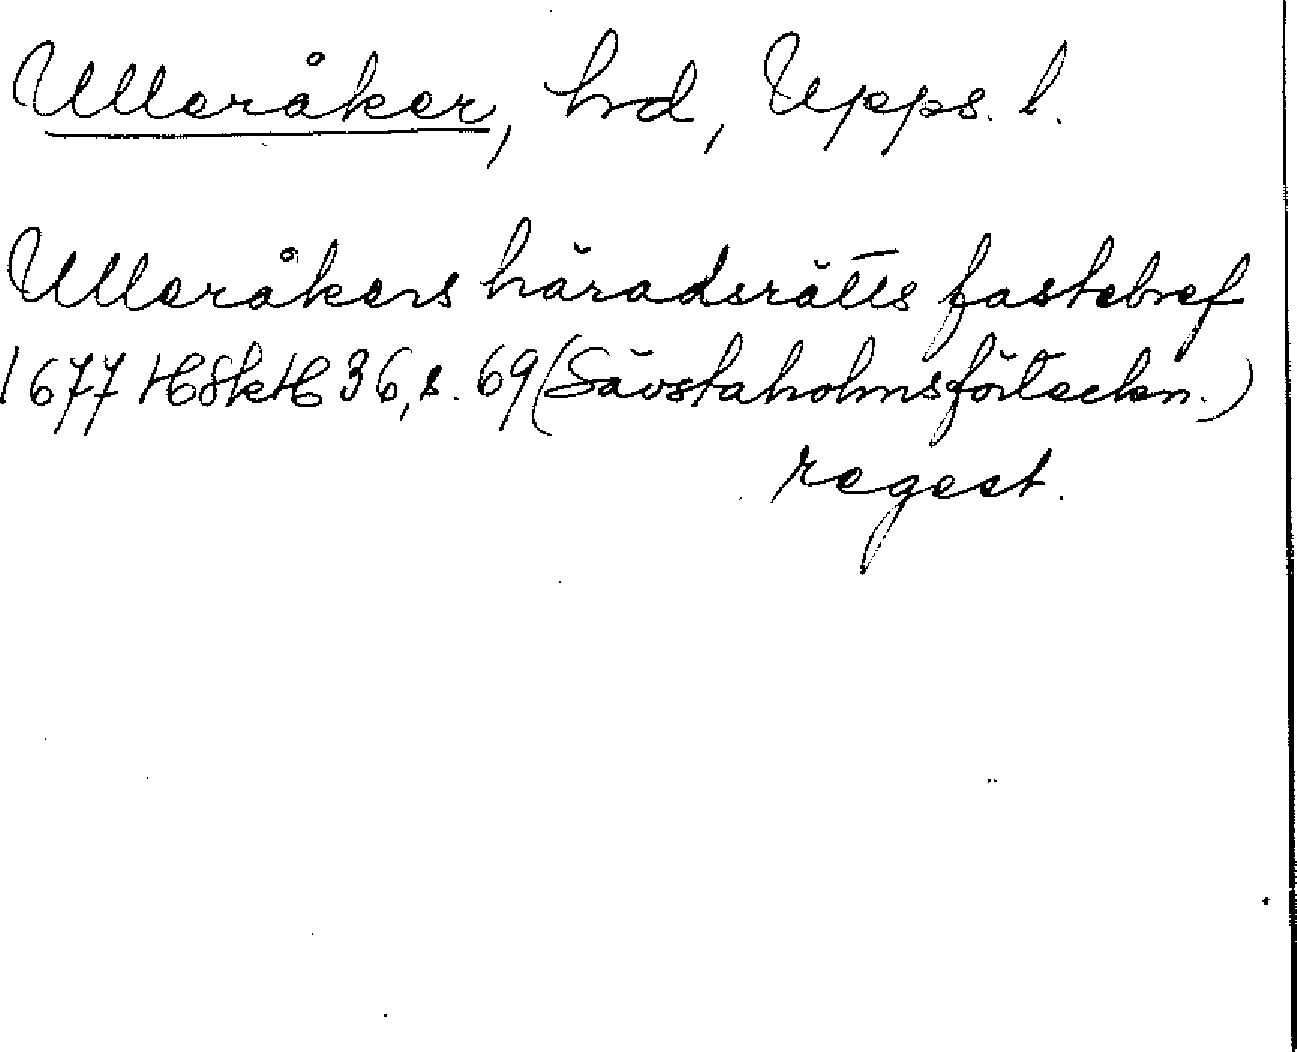 Ulleråker, hd, Upps. l.
Ulleråkers häradsrätts fastebref
1677 HSkH 36, s. 69 (Sävstaholmsförteckn.)
regest.